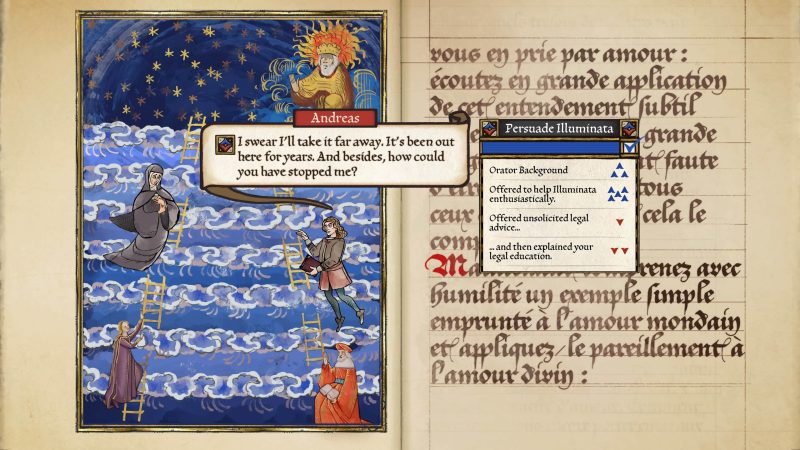 Andreas
I swear I'll take it far away. It's been out
here for years. And besides, how could
you have stopped me?
Persuade Illuminata
Orator Background
Offered to help Illuminata
enthusiastically.
Offered unsolicited legal
advice...
... and then explained your
legal education.
vous en prie par amour :
écoutez en grande application
de cet entendement subtil
grande
faute
tous
ceux
cela le
renez avec
humilité un exemple simple
emprunté à l'amour mondain
et appliquez/le pareillement à
l'amour divin :